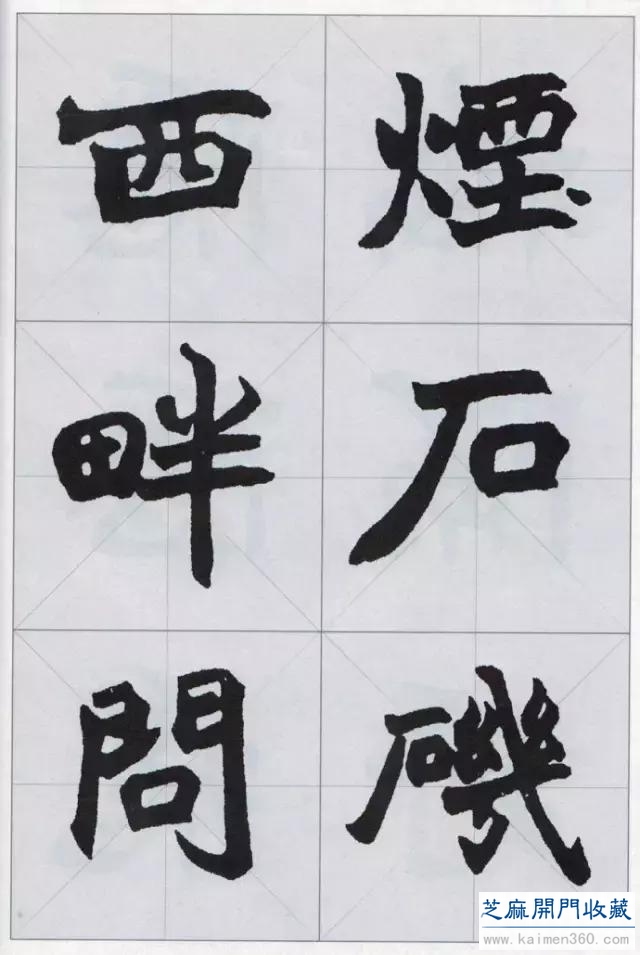 煙石磯
西畔問
芝麻開門收藏
www.kaimen360.com